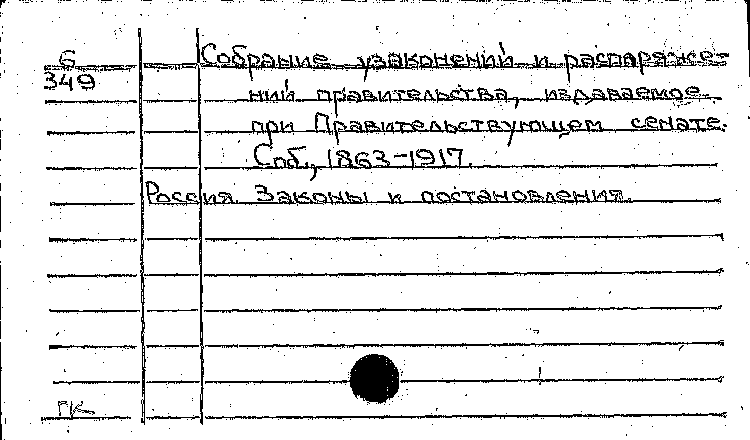 6
349
Собрание узаконений и распоряже-
ний правительства, издаваемое
при Правительствующем сенате.
Спб., 1863-1917.
Россия. Законы и постановления.
ГК